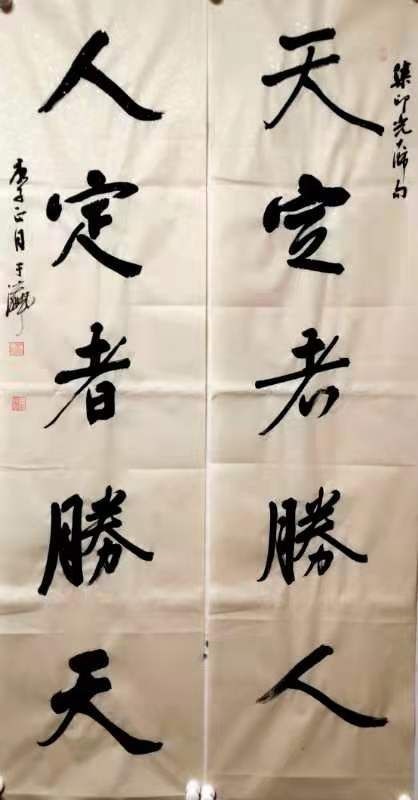 集印光大師句
天定者勝人
人定者勝天
庚子正月于